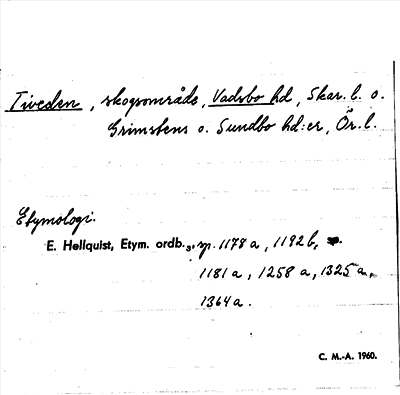 Tiveden, skogsområde, Vadsbo hd, Skar. l. o.
Grimstens o. Sundbo hd:er, Ör. l.
Etymologi.
E. Hellquist, Etym. ordb.3, sp. 1178 a, 1192 b,
1181 a, 1258 a, 1325 a,
1364 a.
C. M.-A. 1960.